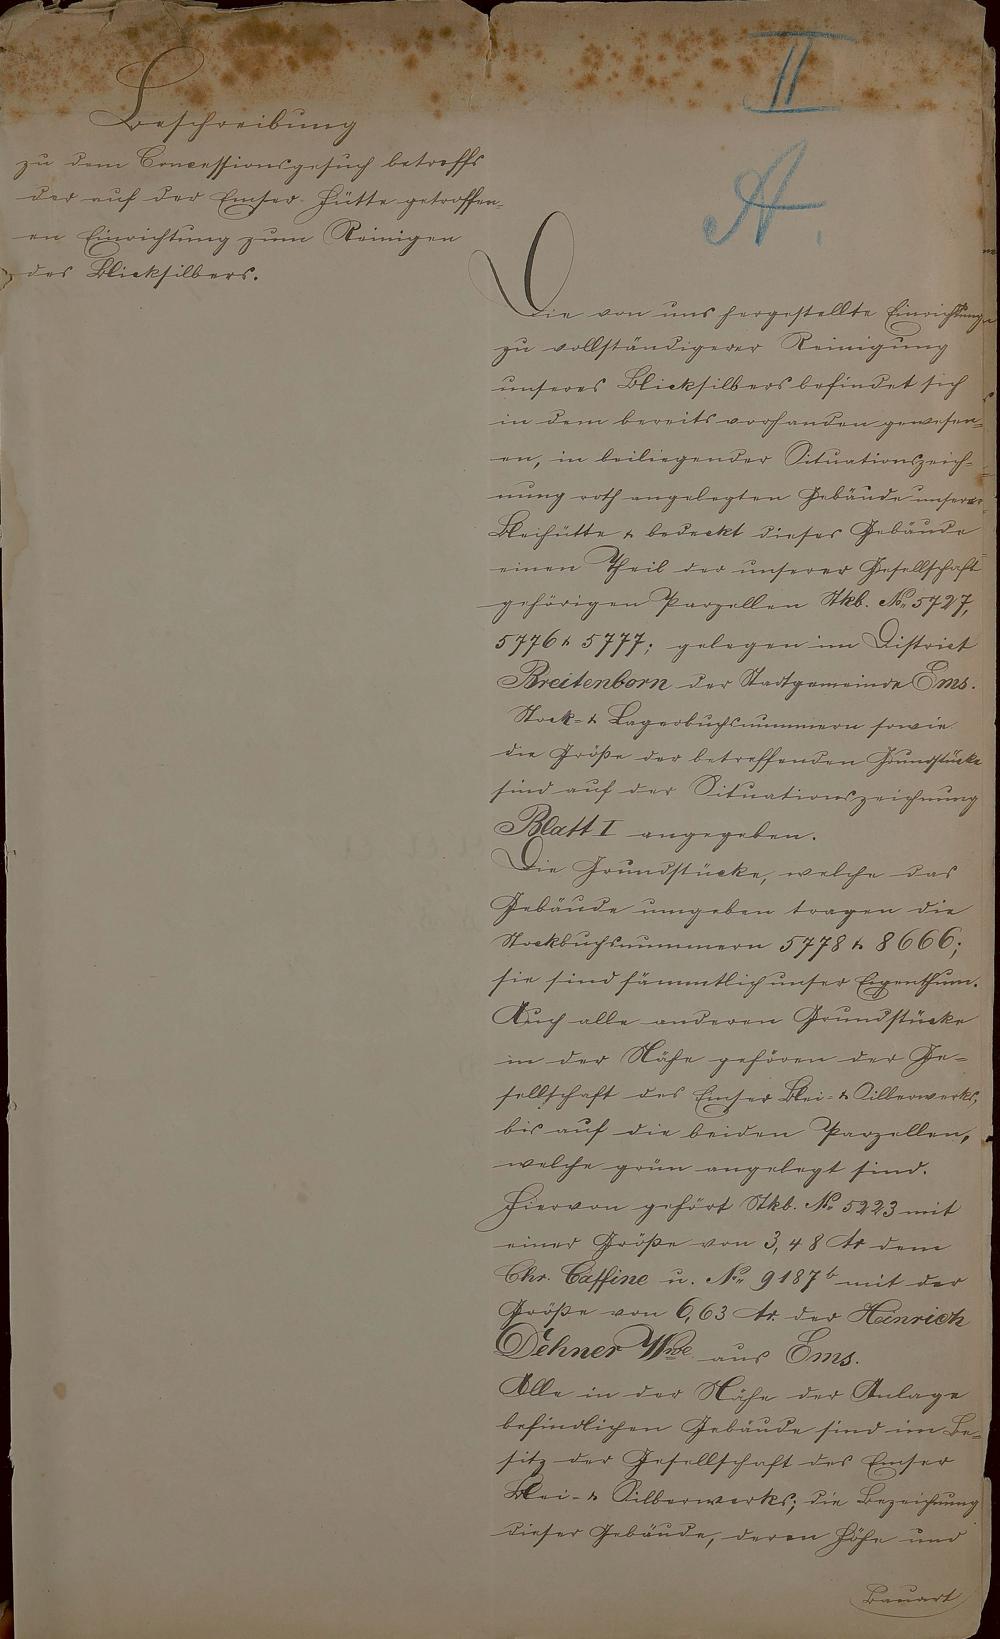 II
A.
Beschreibung
zu dem Concessionsgesuch betreffs
der auf der Emser-Hütte getroffen-
en Einrichtung zum Reinigen
des Blicksilbers.
Die von uns hergestellte Einrichtung
zu vollständigerer Reinigung
unseres Blicksilbers befindet sich
in dem bereits vorhanden gewesen-
en, in beiliegender Situationszeich-
nung roth angelegten Gebäude unserer
Bleihütte & bedeckt dieses Gebäude
einen Theil der unserer Gesellschaft
gehörigen Parzellen Stkb. No. 5727,
5776 & 5777; gelegen im District
Breitenborn der Stadtgemeinde Ems.
Stock- & Lagerbuchsnummern sowie
die Größe der betreffenden Grundstücke
sind auf der Situationszeichnung
Blatt I angegeben.
Die Grundstücke, welche das
Gebäude umgeben tragen die
Stockbuchsnummern 5778 & 8666;
sie sind sämmtlich unser Eigenthum.
Auch alle anderen Grundstücke
in der Nähe gehören der Ge-
sellschaft des Emser Blei- & Silberwerks,
bis auf die beiden Parzellen,
welche grün angelegt sind.
Hiervon gehört Stkb. No. 5223 mit
einer Größe von 3,48 Ar dem
Chr. Caffine u. No. 9187b mit der
Größe von 6,63 Ar. der Heinrich
Dehner Wwe aus Ems.
Alle in der Nähe der Anlage
befindlichen Gebäude sind im Be-
sitz der Gesellschaft des Emser
Blei- & Silberwerks; die Bezeichnung
dieser Gebäude, deren Höhe und
Bauart